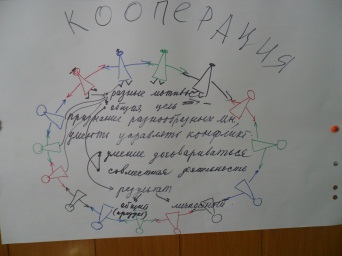 КООПЕРАЦИЯ
разные мотивы
общая цель
признание разнообразных мн.
умение управлять конфликт.
умение договариваться
совместная деятельность
результат
общий личностный
(продукт)